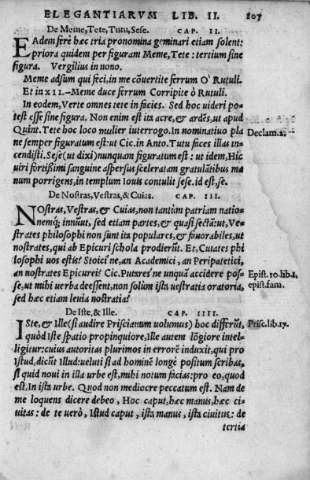 ELEGANTIARVM LIB. II. 107
De Meme, Tete, Tutu, Sese. CAP. II.
EAdem ferè hæc tria pronomina geminari etiam solent:
priora quidem per figuram Meme, Tete: tertium sine
figura. Vergilius in nono.
Meme adsum qui feci, in me cōuertite ferrum O' Rutuli.
Et in XII.—Meme duce ferrum Corripite ô Rutuli
In eodem, Verte omnes tete in facies. Sed hoc uideri po-
test esse sine figura. Non enim est ita acre, & ardēs, ut apud
Quint. Tete hoc loco mulier interrogo. In nominatiuo pla
ne semper figuratum est: ut Cic. in Anto. Tutu fices illas in-
cendisti. Sese (ut dixi) nunquam figuratum est: ut idem, Hic
uiri fortißimi sanguine aspersus sceleratam gratulātibus ma
num porrigens, in templum Iouis contulit sese. id est, se.
Declam.2.
De Nostras, Vestras, & Cuias. CAP. III.
NOstras, Vestras, & Cuias, non tantùm patriam natio-
nemq́; innuūt, sed etiam partes, & quasi sectā: ut, Ve
strates philosophi non sunt tam populares, & fauorabiles, ut
nostrates, qui ab Epicuri schola prodierūt. Et, Cuiates phi
losophi uos estis? Stoici ne, an Academici, an Peripatetici,
an nostrates Epicurei? Cic. Putares' ne unquā accidere posse
se, ut mihi uerba deessent, non solùm ista uestratia oratoria,
sed hæc etiam leuia nostratia?
Epist.10.lib.2.
epist.fam.
De Iste, & Ille. CAP. IIII.
ISte, & Ille (si audire Priscianum uolumus) hoc differūt,
quòd Iste spatio propinquiore, Ille autem lōgiore intel-
ligitur: cuius autoritas plurimos in errorē induxit, qui pro
Istud, dicūt Illud: ueluti si ad hominē longè positum scribas,
si quid noui in illa urbe est, mihi notum facias: pro eo, quod
est, In ista urbe. Quod non mediocre peccatum est. Nam de
me loquens dicere debeo, Hoc caput, hæc manus, hæc ci-
uitas: de te uerò, Istud caput, ista manus, ista ciuitas: de
tertia
Prisc.lib.17.